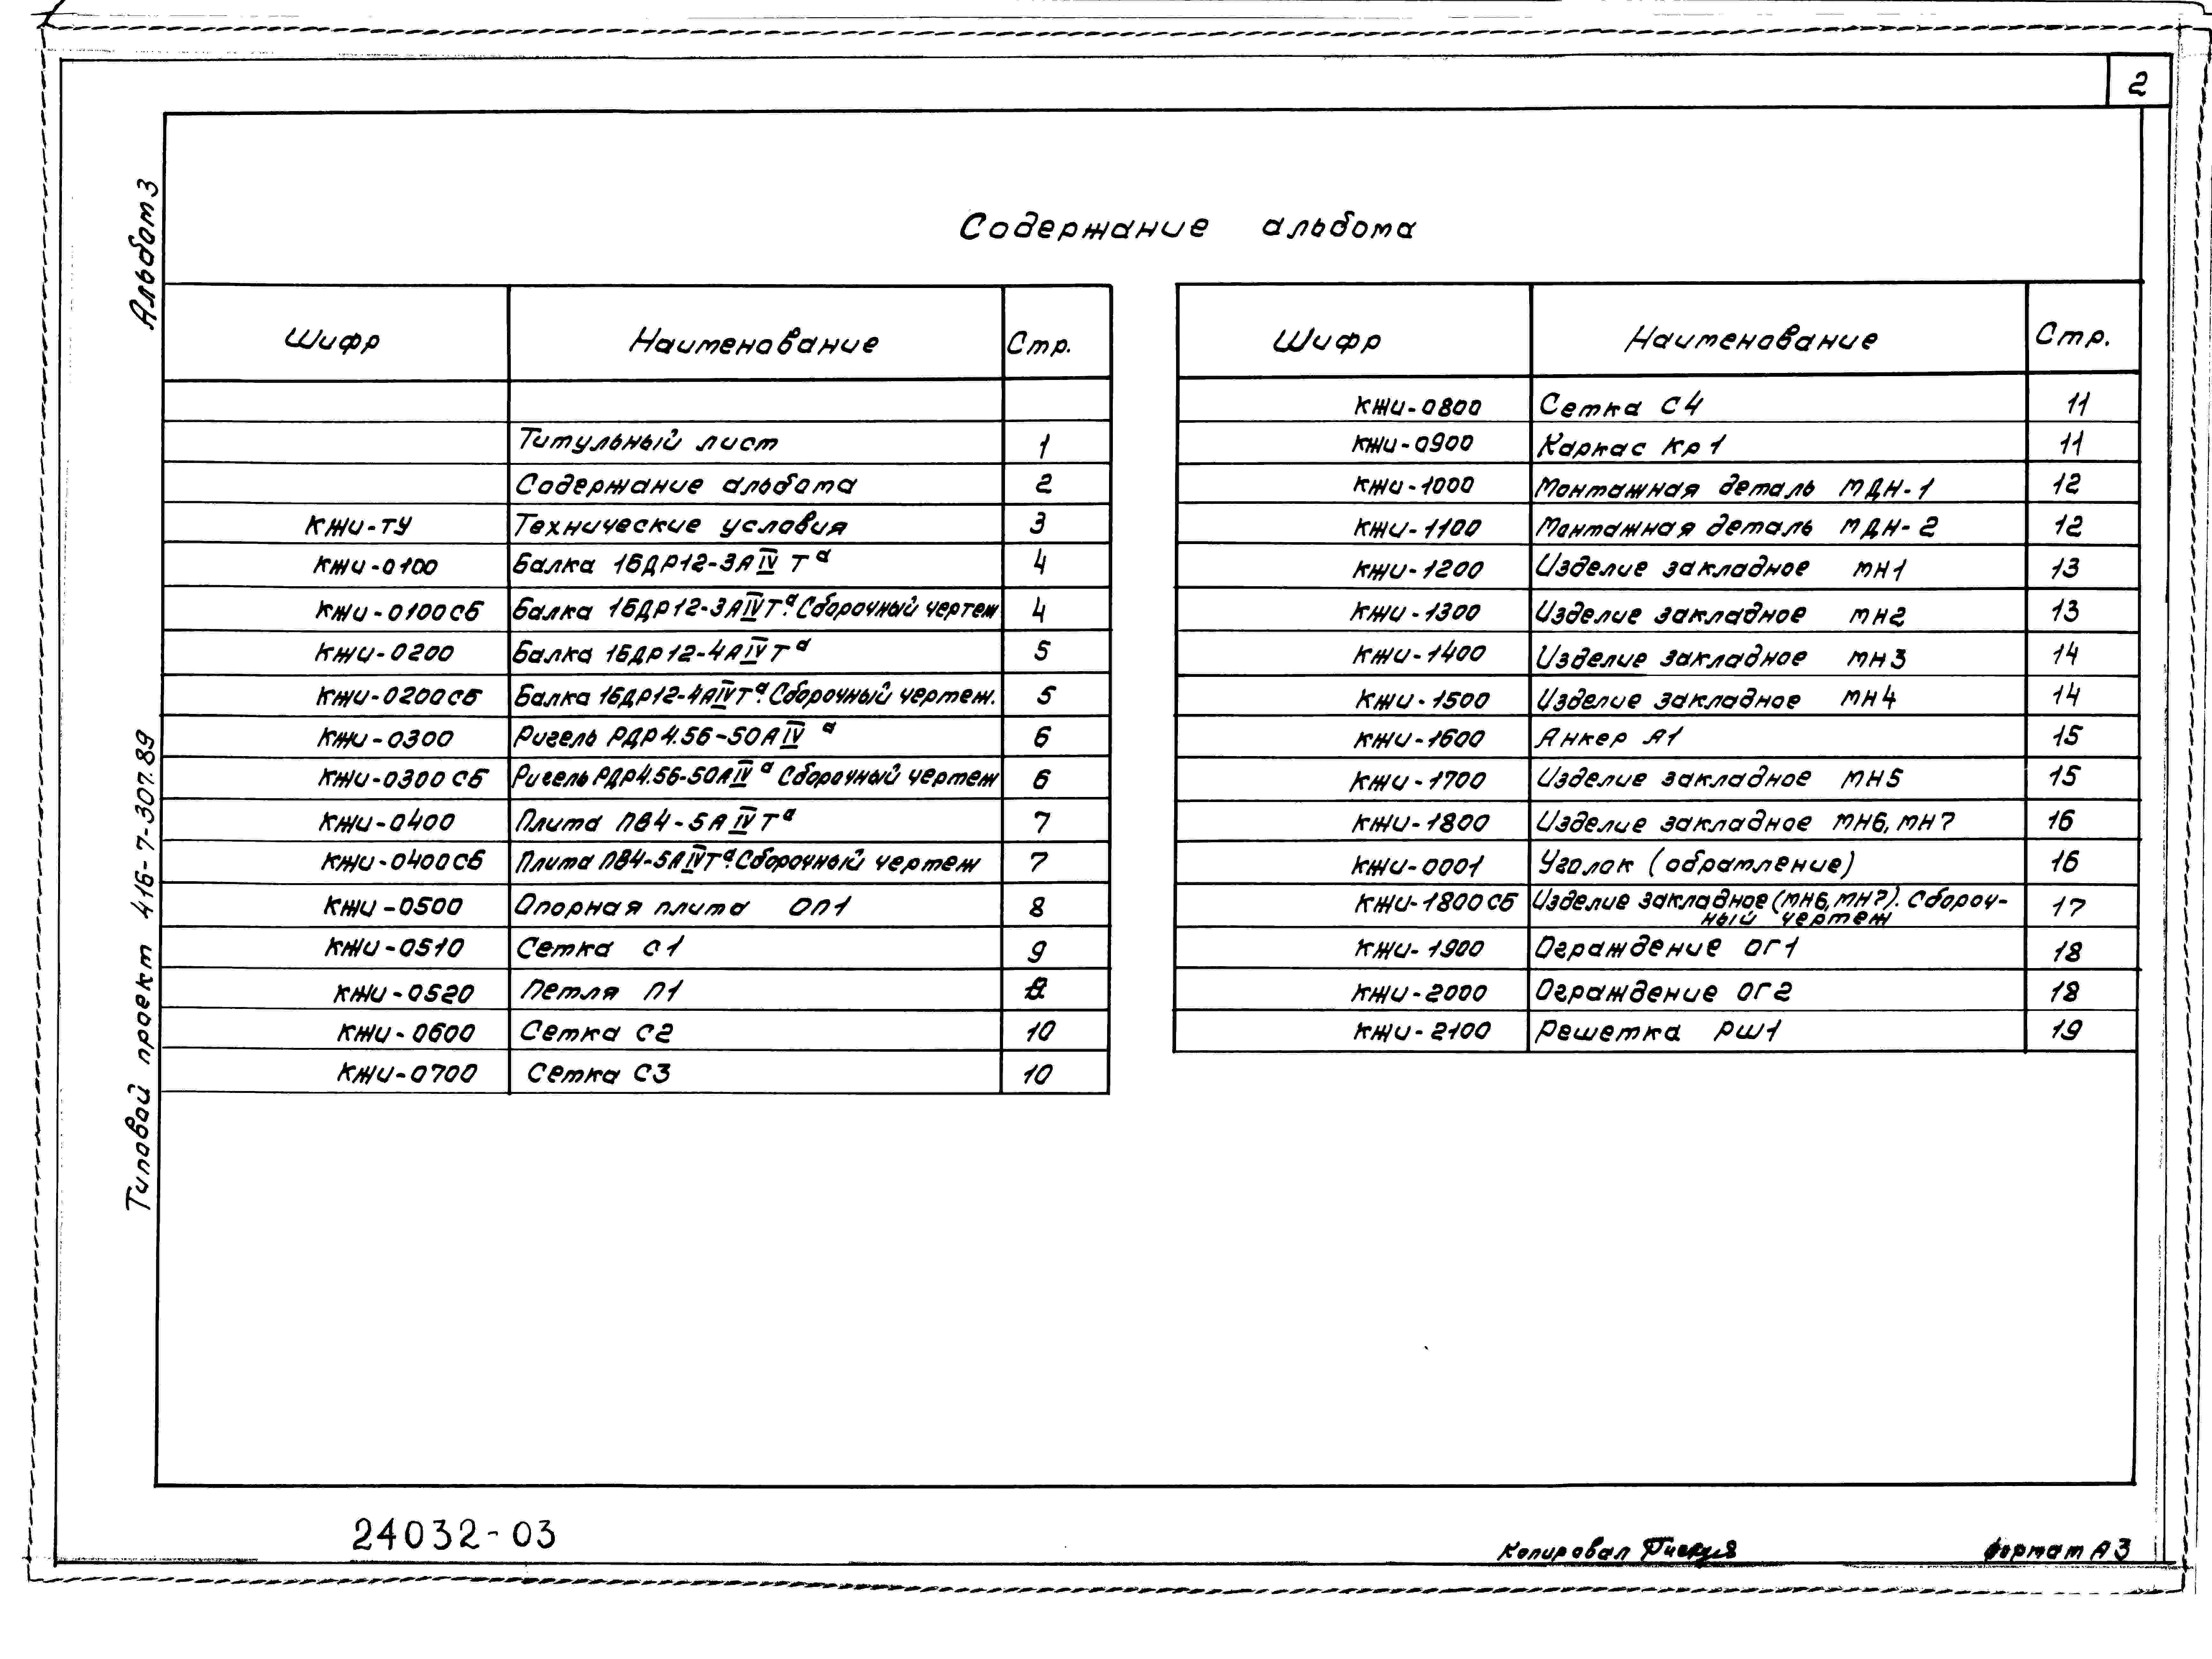 2
Альбом 3
Типовой проект 416-7-307.89
Содержание альбома
Шифр Наименование Стр.
Титульный лист 1
Содержание альбома 2
КЖИ-ТУ Технические условия 3
КЖИ-0100 Балка 1БДР12-3АIV Тᵃ 4
КЖИ-0100СБ Балка 1БДР12-3АIVТᵃ. Сборочный чертеж 4
КЖИ-0200 Балка 1БДР12-4АIVТᵃ 5
КЖИ-0200СБ Балка 1БДР12-4АIVТᵃ. Сборочный чертеж. 5
КЖИ-0300 Ригель РДР4.56-50АIV ᵃ 6
КЖИ-0300СБ Ригель РДР4.56-50АIV ᵃ Сборочный чертеж 6
КЖИ-0400 Плита ПВ4-5АIVТᵃ 7
КЖИ-0400СБ Плита ПВ4-5АIVТᵃ. Сборочный чертеж 7
КЖИ-0500 Опорная плита ОП1 8
КЖИ-0510 Сетка С1 9
КЖИ-0520 Петля П1
КЖИ-0600 Сетка С2 10
КЖИ-0700 Сетка С3 10
Шифр Наименование Стр.
КЖИ-0800 Сетка С4 11
КЖИ-0900 Каркас Кр1 11
КЖИ-1000 Монтажная деталь МДН-1 12
КЖИ-1100 Монтажная деталь МДН-2 12
КЖИ-1200 Изделие закладное МН1 13
КЖИ-1300 Изделие закладное МН2 13
КЖИ-1400 Изделие закладное МН3 14
КЖИ-1500 Изделие закладное МН4 14
КЖИ-1600 Анкер А1 15
КЖИ-1700 Изделие закладное МН5 15
КЖИ-1800 Изделие закладное МН6, МН7 16
КЖИ-0001 Уголок (обрамление) 16
КЖИ-1800СБ Изделие закладное (МН6, МН7). Сбороч-
ный чертеж 17
КЖИ-1900 Ограждение ОГ1 18
КЖИ-2000 Ограждение ОГ2 18
КЖИ-2100 Решетка РШ1 19
24032-03
Копировал
Формат А3